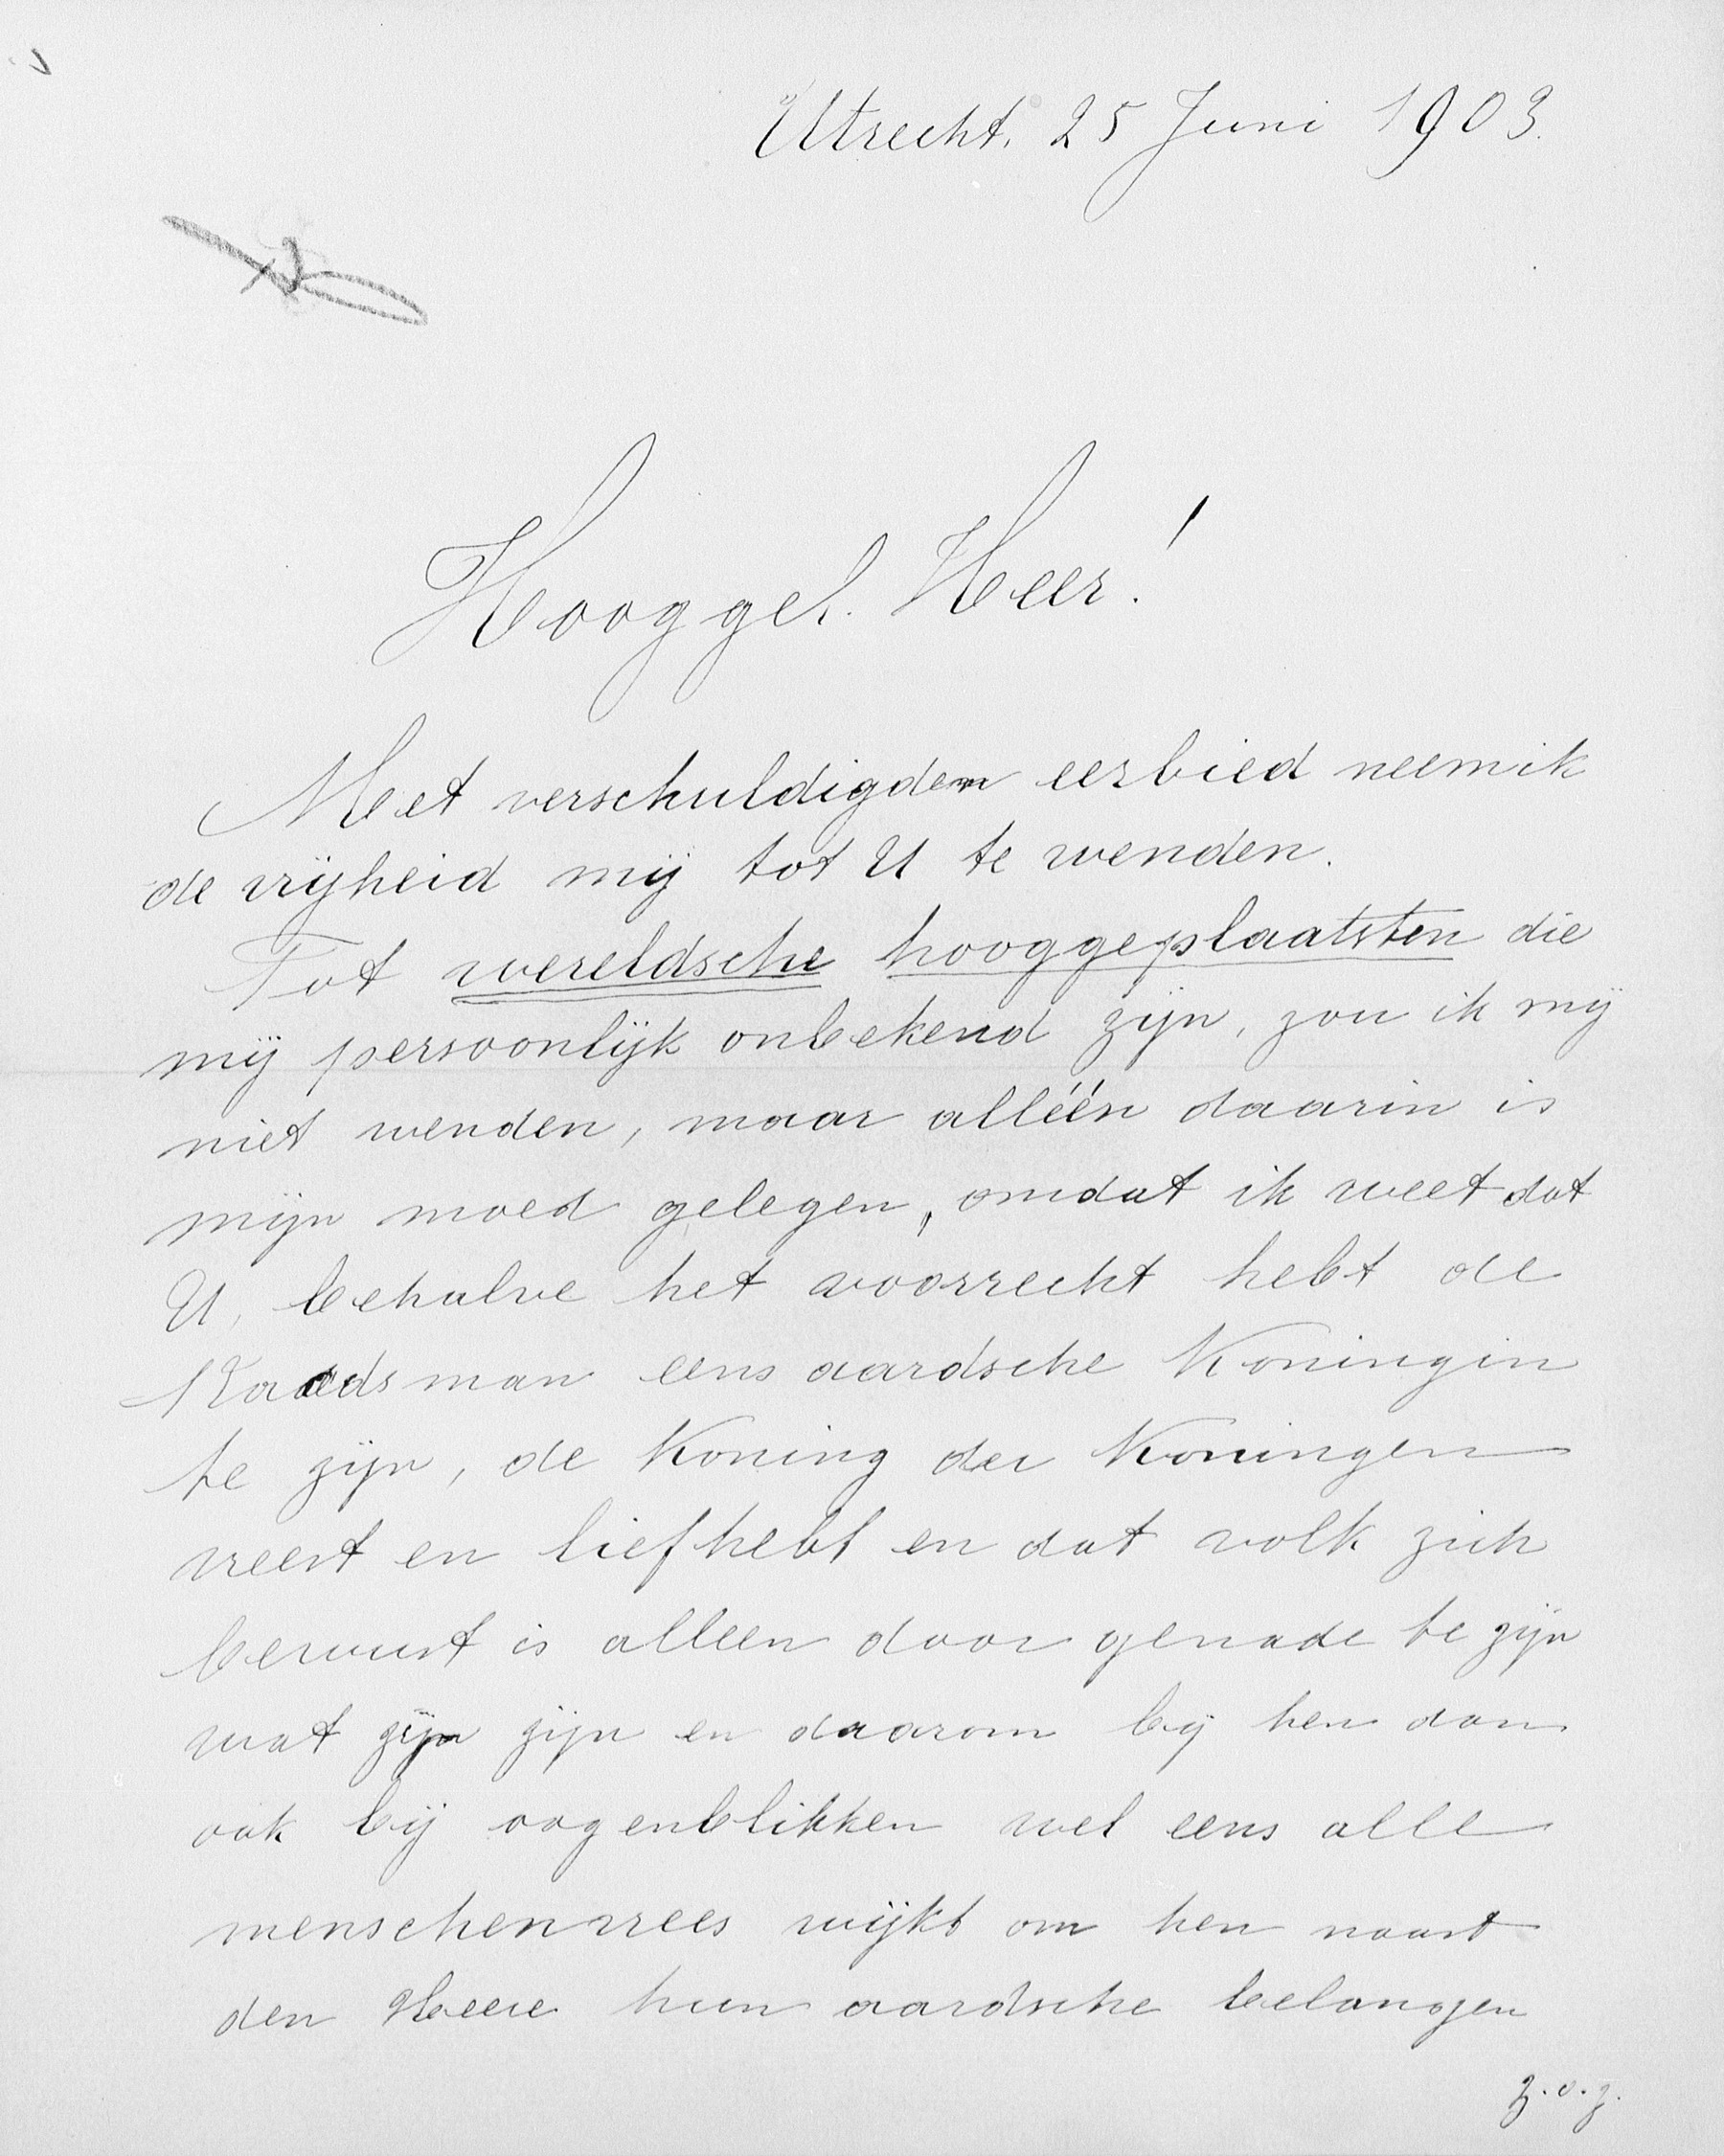 Utrecht. 25 Juni 1903.
Hooggel. Heer!
Met verschuldigden eerbied neem ik
de vrijheid mij tot U te wenden.
Tot wereldsche hooggeplaatsten die
mij persoonlijk onbekend zijn, zou ik mij
niet wenden, maar alléén daarin is
mijn moed gelegen, omdat ik weet dat
U, behalve het voorrecht hebt de
Raadsman eens aardsche Koningin
te zijn, de Koning der Koningen
vreest en liefhebt en dat volk zich
bewust is alleen door genade te zijn
wat zijn zijn en daarom bij hen dan
ook bij oogenblikken wel eens alle
menschenvrees wijkt om hen naast
den Heere hun aardsche belangen
z.o.z.